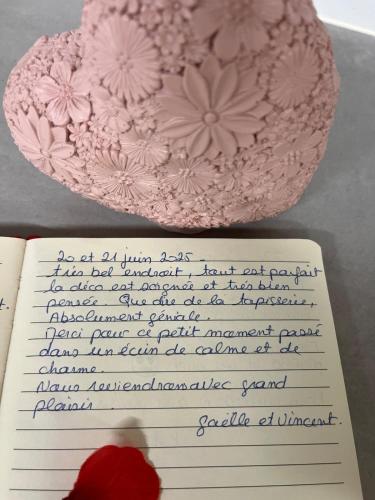 20 et 21 juin 2025.
très bel endroit, tout est parfait
la déco est soignée et très bien
pensée. Que dire de la tapisserie,
Absolument géniale.
Merci pour ce petit moment passé
dans un écrin de calme et de
charme.
Nous reviendrons avec grand
plaisir.
Gaëlle et Vincent.
t.